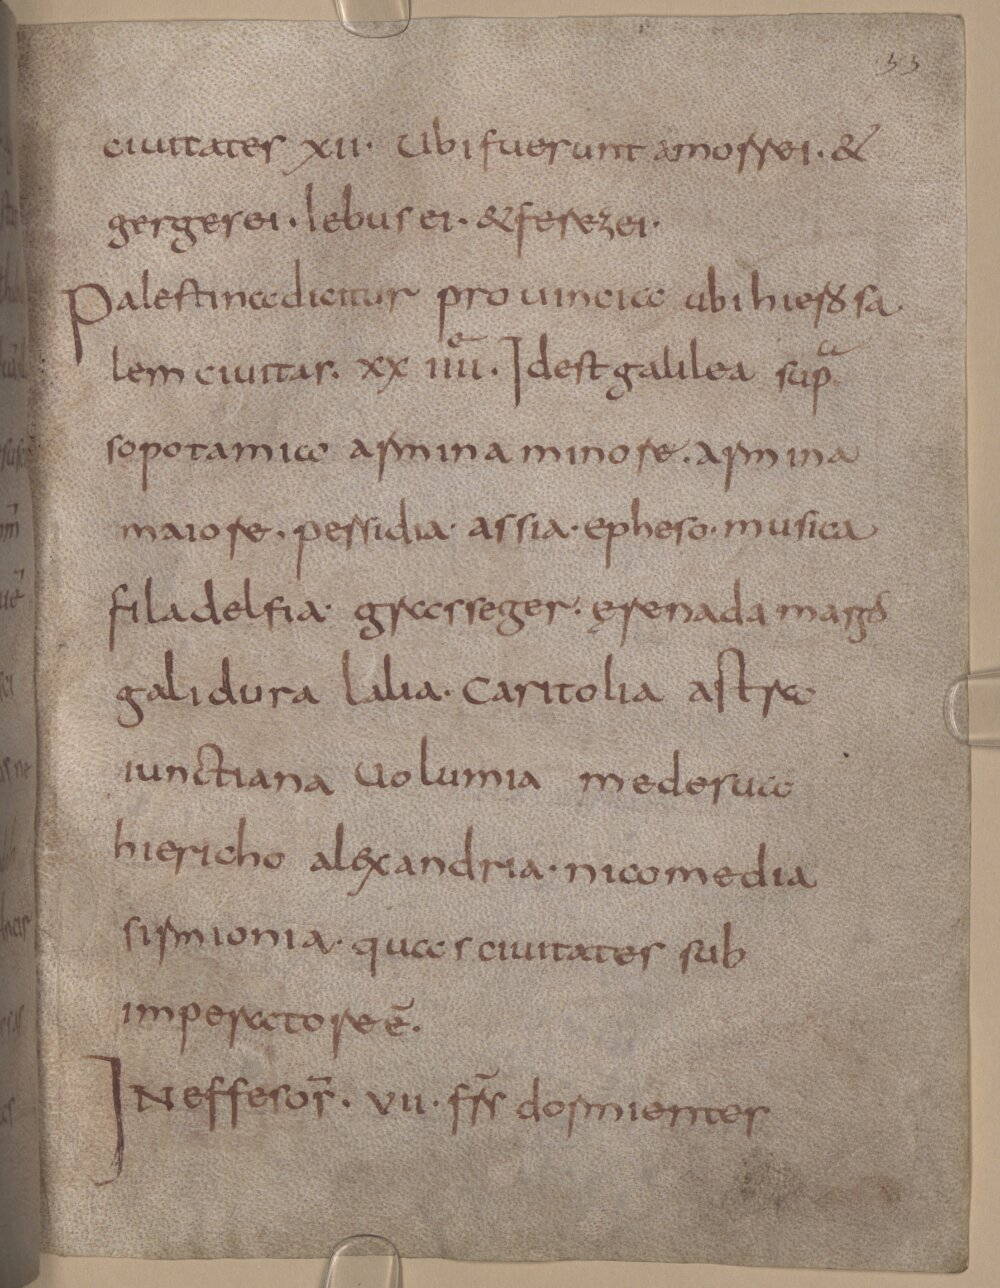 33
ciuitates xii· Ubi fuerunt amorrei· &
gergesei· Iebusei· & ferezei·
Palestina dicitur prouincia ubi hierusa
lem ciuitas· xx iiii· Idest galilea sup
sopotamia armina minore· armina
maiore· pessidia· assia· epheso· musica
filadelfia· grasseger· ęrenada
galidura lalia· Caritolia astra
iunctiana Uolumia medesua
hiericho alexandria· nicomedia
sirmionia· quas ciuitates sub
imperatore ē·
IN effesor̄· vii· fr̄s dormientes